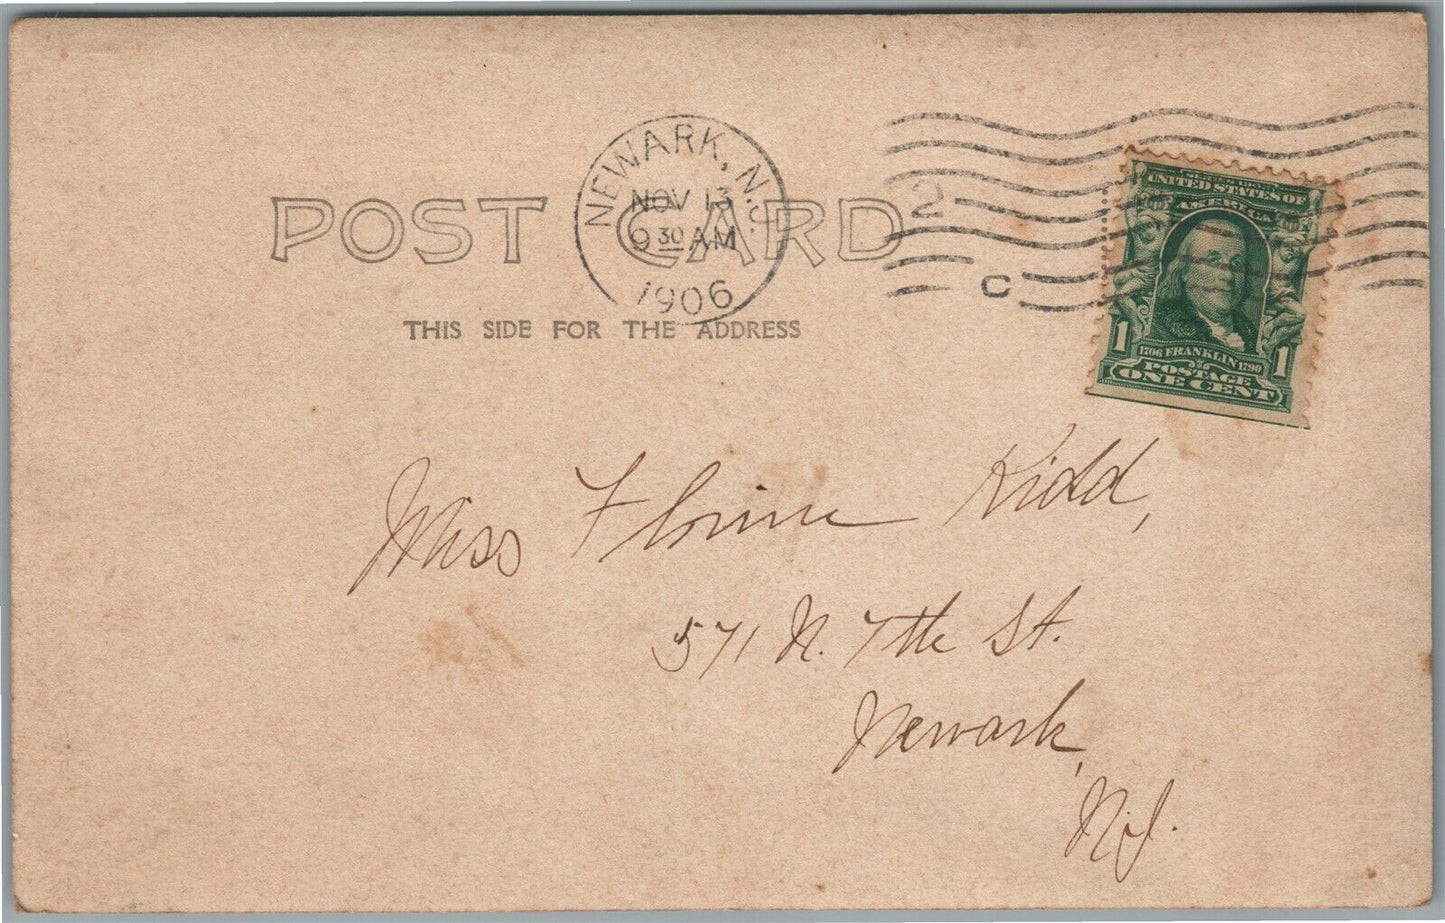 POST CARD
THIS SIDE FOR THE ADDRESS
NEWARK, N.J.
NOV 13
9 30 AM
1906
2
C
UNITED STATES OF
AMERICA
1 1
1706 FRANKLIN 1790
POSTAGE
ONE CENT
Miss Florine Kidd,
571 N. 7th St.
Newark,
N.J.